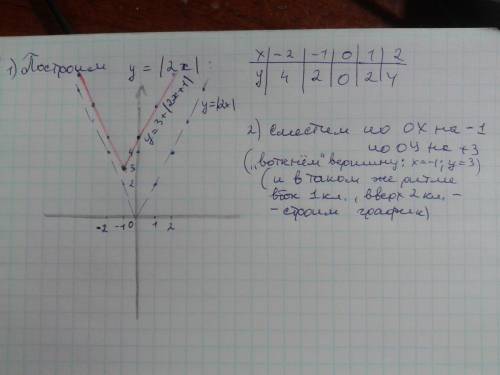 1) Построим y = |2x| :
x -2 -1 0 1 2
y 4 2 0 2 4
y=3+|2x+1|
y=|2x|
2) Сместим по OX на -1
по OY на +3
("воткнём" вершину: x=-1; y=3)
(и в таком же ритме
вбок 1кл., вверх 2кл. -
- строим график)
4
3
2
-2 -1 0 1 2